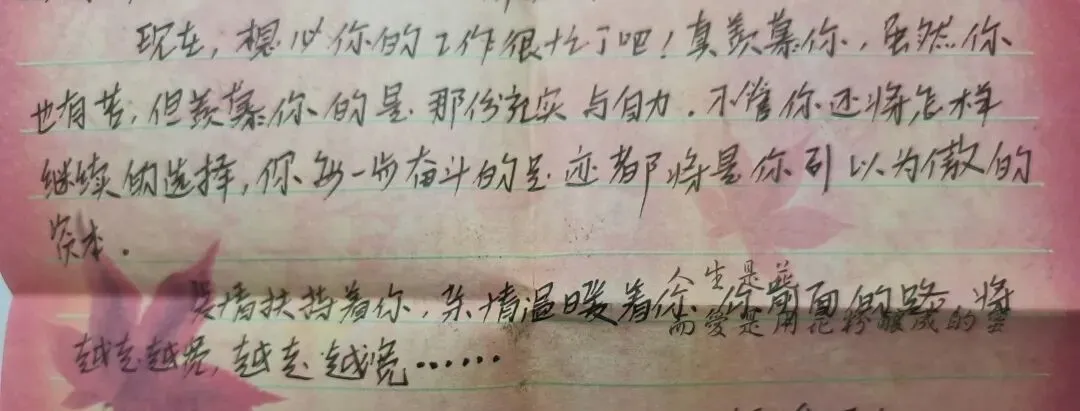 现在，想必你的工作很忙了吧！真羡慕你，虽然你
也有苦，但羡慕你的是那份充实与自力．不管你还将怎样
继续的选择，你每一步奋斗的足迹都将是你引以为傲的
资本．
人生是
情扶持着你，亲情温暖着你，你前面的路，将
而爱是用花 酿成的蜜
越走越亮，越走越宽……